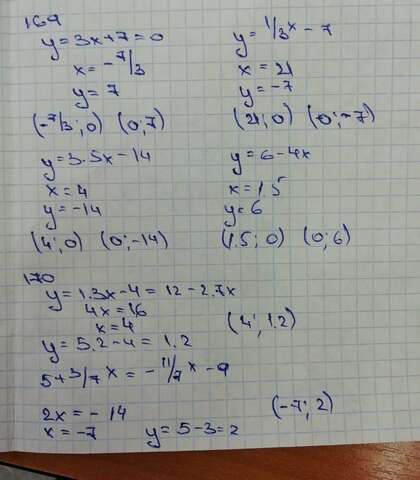 169
y = 3x + 7 = 0
x = -7/3
y = 7
(-7/3; 0) (0; 7)
y = 1/3 x - 7
x = 21
y = -7
(21; 0) (0; -7)
y = 3.5x - 14
x = 4
y = -14
(4; 0) (0; -14)
y = 6 - 4x
x = 1.5
y = 6
(1.5; 0) (0; 6)
170
y = 1.3x - 4 = 12 - 2.7x
4x = 16
x = 4
(4; 1.2)
y = 5.2 - 4 = 1.2
5 + 3/7 x = -11/7 x - 9
2x = -14
x = -7
y = 5 - 3 = 2
(-7; 2)